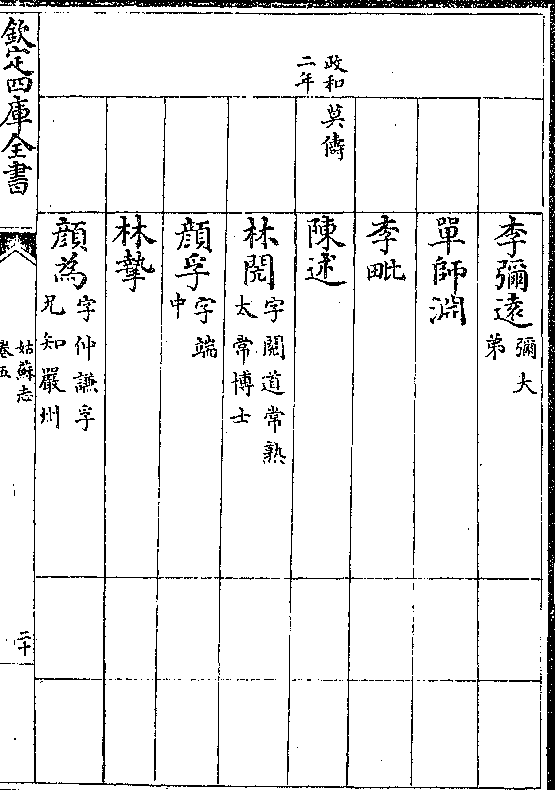 李彌遠彌大弟
單師淵
李毗
政和二年
莫儔
陳述
林閱字闢道常熟太常博士
顔孚字端中
林摯
顔為字仲謙孚兄知嚴州
欽定四庫全書
姑蘇志
卷五
二十